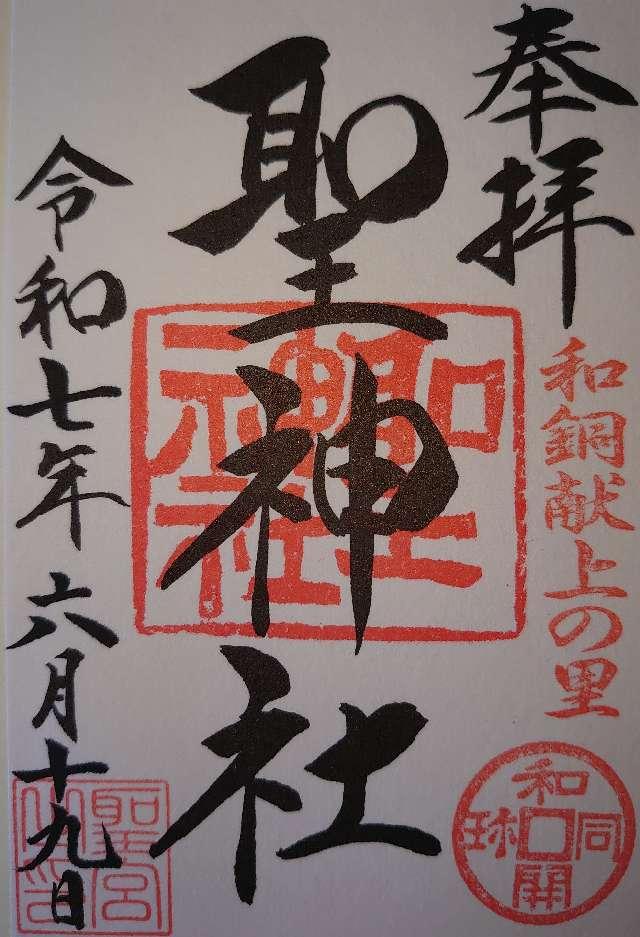 奉拝
和銅献上の里
和同開珎
聖神社
聖神社
令和七年六月十九日